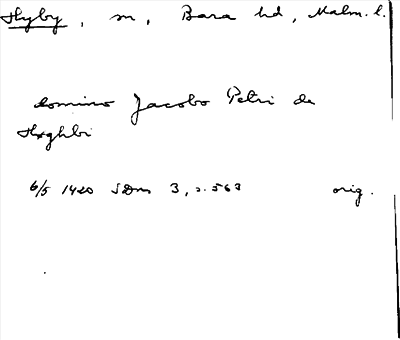 Hyby, sn, Bara hd, Malm. l.
domino Jacobo Petri de
Høghbi
6/5 1420 SDns 3, s. 563 orig.